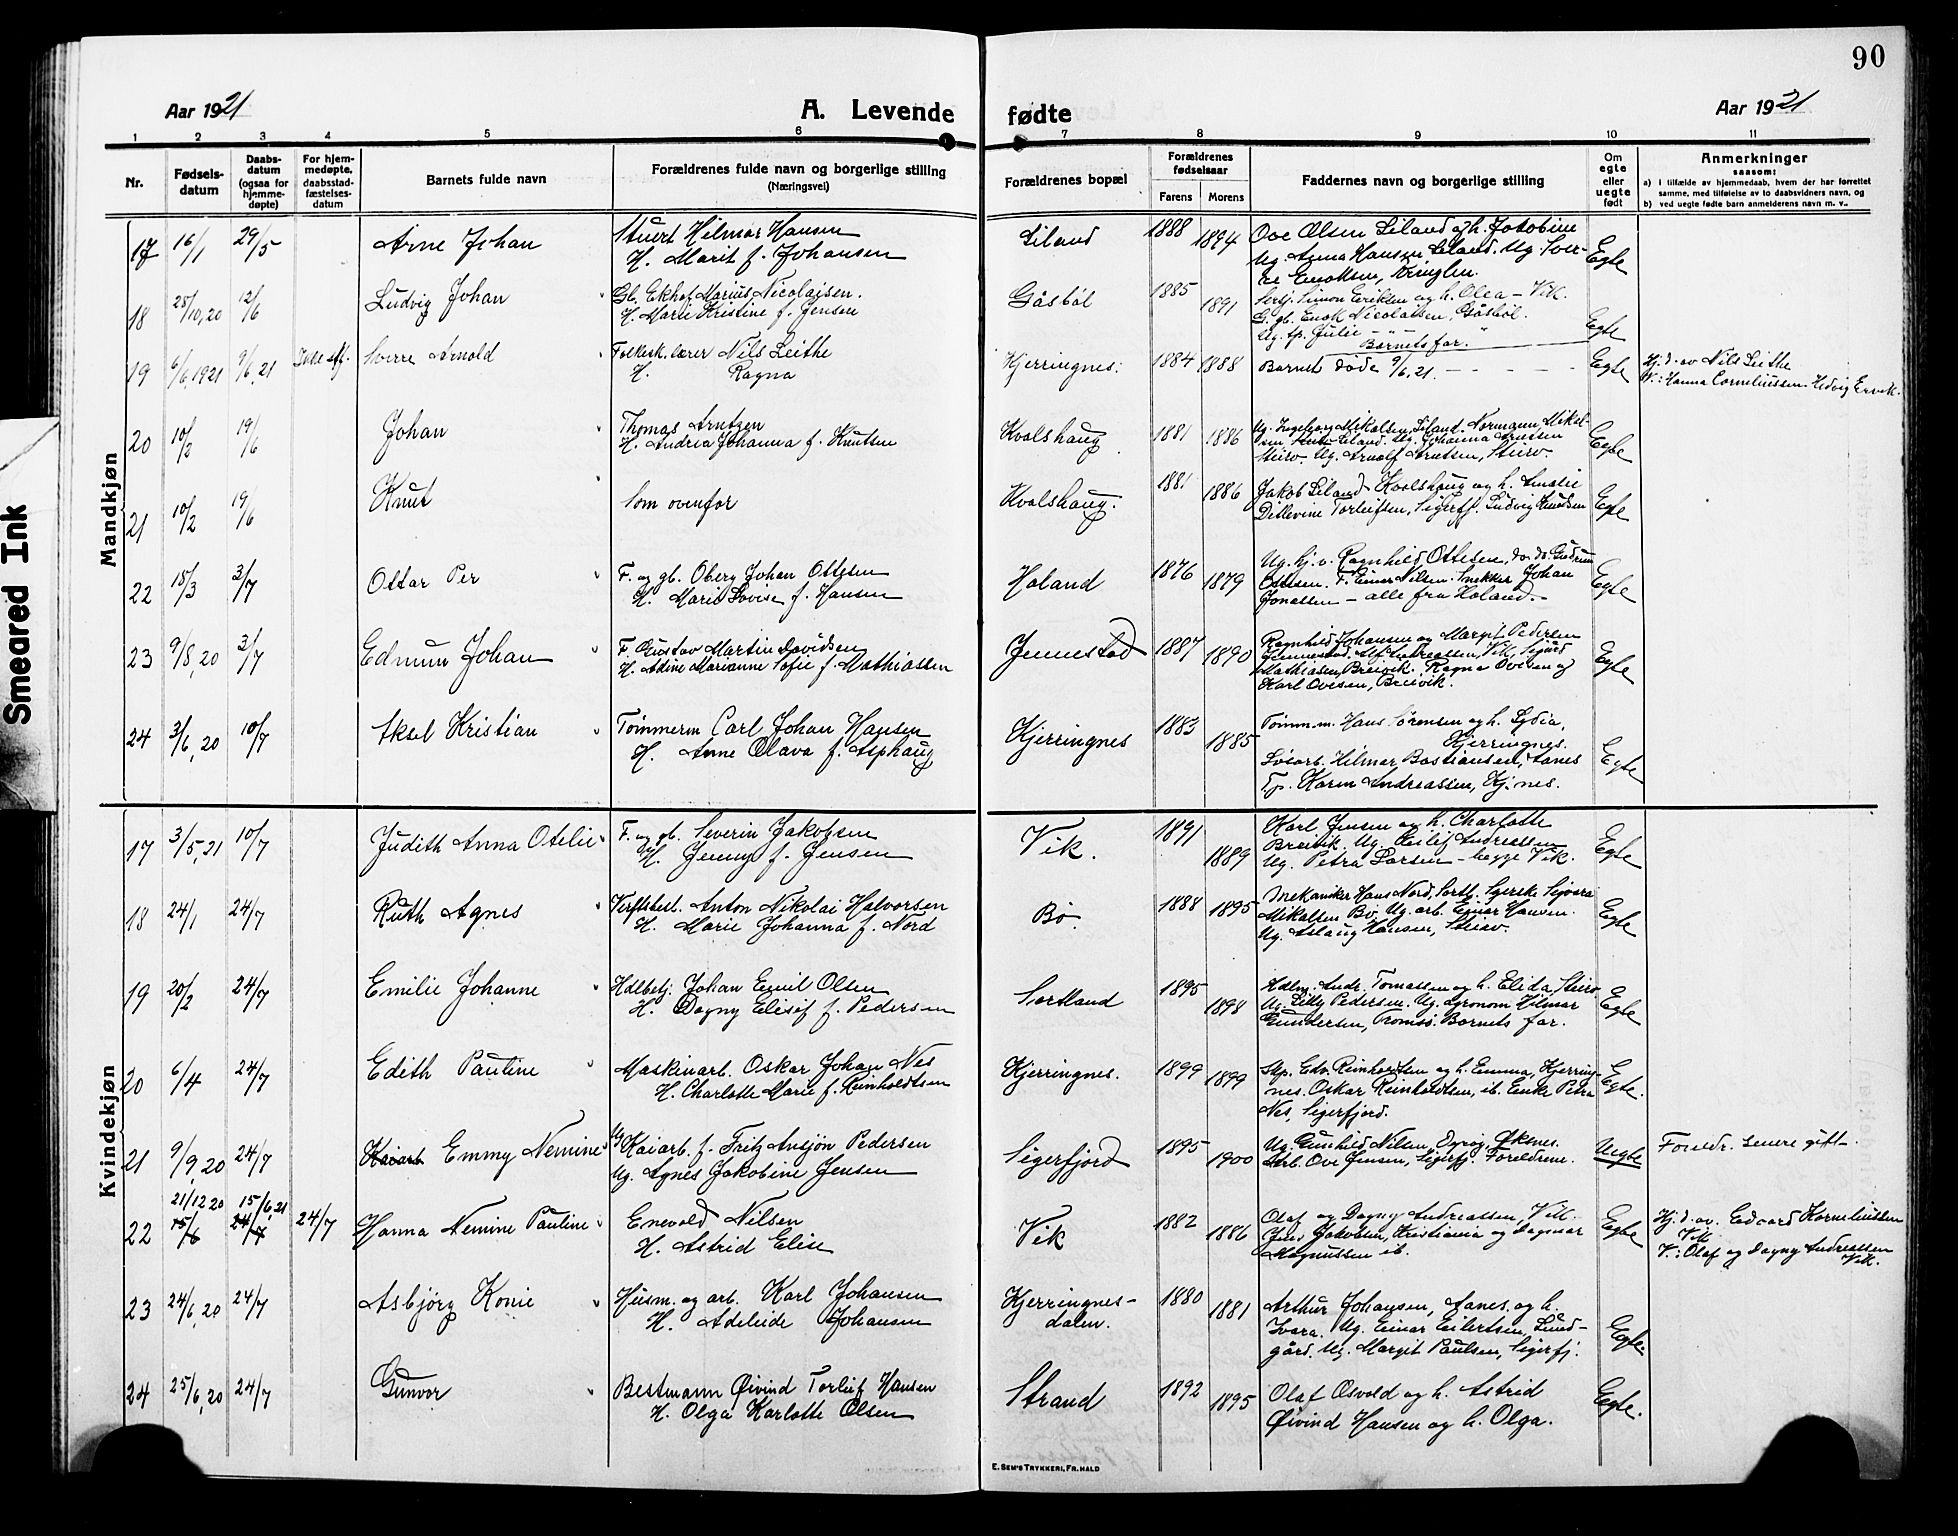 90
Aar 1921
A. Levende
fødte
Aar 1921
1 2 3 4 5 6 7 8 9 10 11
Nr.
Fødsels-
datum
Daabs-
datum
(ogsaa for
hjemme-
døpte)
For hjem-
medøpte,
daabsstad-
fæstelses-
datum
Barnets fulde navn
Forældrenes fulde navn og borgerlige stilling
(Næringsvei)
Forældrenes bopæl
Forældrenes
fødselsaar
Farens Morens
Faddernes navn og borgerlige stilling
Om
egte
eller
uegte
født
Anmerkninger
saasom:
a) i tilfælde av hjemmedaab, hvem der har forrettet
samme, med tilføielse av to daabsvidners navn, og
b) ved uegte fødte barn anmelderens navn m. v..
Mandkjøn
17 16/1 29/5 Arne Johan
Stuert Hilmar Hansen
H. Marit f. Johansen
Liland 1888 1894
Ove Olsen Liland og h. Jakobine
Ug. Anna Hansen, Liland. Ug. Sver-
re Enoksen, Kringlen.
Egte
18 25/10,20 12/6 Ludvig Johan
Gb. Ekhof Marius Nicolaisen.
H. Marie Kristine f. Jensen
Gåsbøl 1885 1891
Simon Eriksen og h. Olea – Vik.
G. gb. Enok Nicolaisen, Gåsbøl.
Ug. tp. Julie – " – "
Barnets far.
Egte
19 6/6,1921 9/6,21 Sverre Arnold
Folkesk.lærer Nils Leithe
H. Ragna
Kjerringnes. 1884 1888
Barnet døde 9/6,21. – – – – –
Egte
Hj. d. av Nils Leithe
V.: Hanna Corneliussen Hedvig Ervik.
20 10/2 19/6 Johan
Thomas Arntzen
H. Andrea Johanna f. Knutsen
Kvalshaug 1881 1886
Ug. Ingeborg Mikalsen, Liland. Normann Mikal-
sen Liland. Ug. Johanna Arntsen
Steiro. Ug. Arnolf Arntsen, Steiro.
Egte
21 10/2 19/6 Knut
Som ovenfor
Kvalshaug. 1881 1886
Jakob Liland Kvalshaug og h. Amalie
Ditlevine Torleifsen, Sigerfj. Ludvig Knudsen
Egte
22 15/3 3/7 Ottar Per
F. og gb. Oberg Johan Ottesen
H. Marie Lovise f. Hansen
Holand 1876 1879
Ug. hj. v. Ragnhild Ottesen, do do. Gudrun
Ottesen. F. Einar Nilsen. Snekker Johan
Jonassen – alle fra Holand.
Egte
23 9/8,20 3/7 Edmun Johan
F. Gustav Martin Davidsen
H. Adine Marianne Sofie f. Mathiassen
Jennestad 1887 1890
Ragnhild Johansen og Margit Pedersen
Jennestad. Andreassen, Vik, Sigurd
Mathiasen, Breivik. Ragna Ovesen og
Karl Ovesen, Breivik.
Egte
24 3/6,20 10/7 Aksel Kristian
Tømmerm Carl Johan Hansen
H. Anne Olava f. Asphaug
Kjerringnes 1883 1885
Tømm.m. Hans Sørensen og h. Lydia,
Kjerringnes.
Hilmar Bastiansen, Sanes
Tp. Karen Andreassen, Kj.nes.
Egte
Kvindekjøn
17 3/5,21 10/7 Judith Anna Otelie
F. og gb. Severin Jakobsen
H. Jenny f. Jensen
Vik. 1891 1889
Karl Jensen og h. Charlotte
Breivik. Ug. Eilif Andreassen
Ug. Petra Larsen – begge Vik.
Egte
18 24/1 24/7 Ruth Agnes
Verftsbest. Anton Nikolai Halvorsen
H. Marie Johanna f. Nord
Bø. 1888 1895
Mekaniker Hans Nord, Sortl.
Mikalsen Bø. Ug. arb. Einar Hansen.
Ug. Aslaug Hansen, Steiro.
Egte
19 20/2 24/7 Emilie Johanne
Hdlbetj. Johan Emil Olsen
H. Dagny Elisif f. Pedersen
Sortland 1895 1898
Hdlm. Andr. Tomassen og h. Elida, Steiro
Ug. Lilly Pedersen. Ug. Agronom Hilmar
Gundersen, Tromsø. Barnets far.
Egte
20 6/4 24/7 Edith Pauline
Maskinarb. Oskar Johan Nes
H. Charlotte Marie f. Reinholdtsen
Kjerringnes. 1899 1899
Stp. Edv. Reinholdtsen og h. Emma, Kjerring-
nes. Oskar Reinholdtsen, ib. Enke Petra
Nes, Sigerfjord.
Egte.
21 9/9,20 24/7 Kaiarb Emmy Nemine
Ug Kaiarb. f. Fritz Ansjøn Pedersen
Ug. Agnes Jakobine Jensen
Sigerfjord 1895 1900
Ug. Gunhild Nilsen, Øksnes.
Arb. Ove Jensen, Sigerfj. Foreldrene.
Uegte
Foreldr. senere gift.
22 21/12 20 15/6 15/6,21 24/7 24/7 Hanna Nemine Pauline
Enevold Nilsen
H. Astrid Elise
Vik 1882 1886
Olaf og Dagny Andreassen, Vik.
Jens Jakobsen, Kristiania og Dagmar
Magnussen ib.
Egte
Hj. d. av. Edvard Korneliussen
Vik
V.: Olaf og Dagny Andreassen
Vik.
23 24/6,20 24/7 Asbjørg Konie
Husm. og arb. Karl Johansen
H. Adeleide Johansen
Kjerringnes-
dalen. 1880 1881
Arthur Johansen, Sanes og h.
Ivara. Ug. Einar Eilertsen, Lund-
gård. Ug. Margit Paulsen, Sigerfj.
Egte.
24 25/6,20 24/7 Gunvor
Bestmann Øivind Torleif Hansen
H. Olga Karlotte Olsen
Strand 1892 1895
Olaf Osvold og h. Astrid
Øivind Hansen og h. Olga.
Egte.
E. Sem's Trykkeri, Fr.hald
Smeared Ink